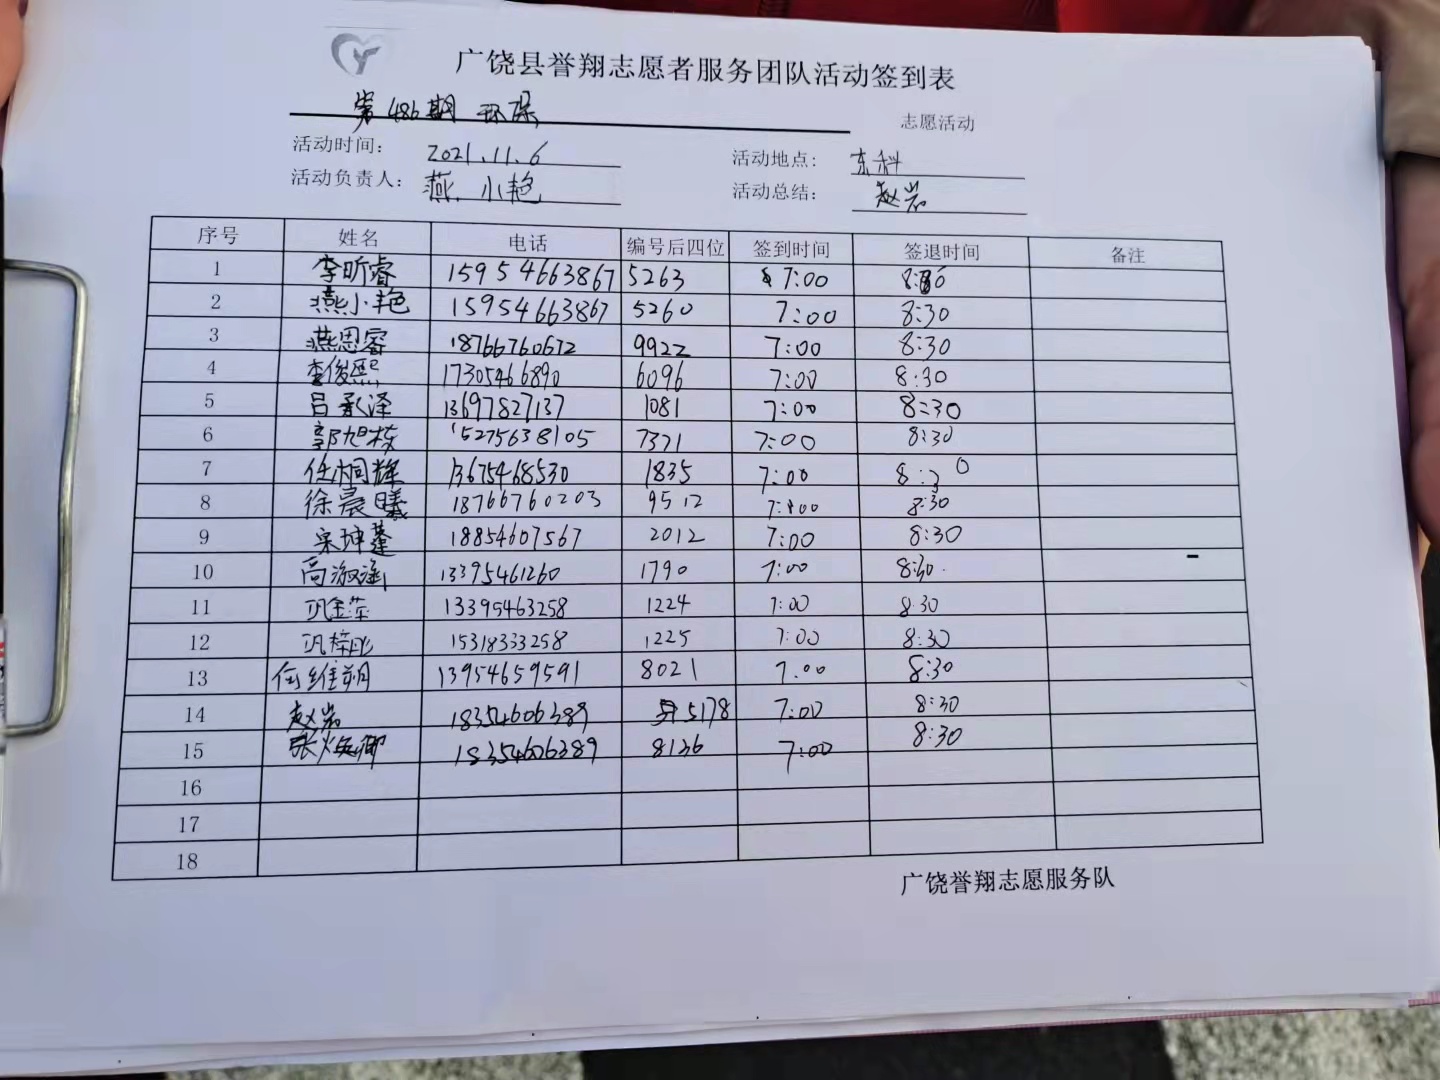 广饶县誉翔志愿者服务团队活动签到表
第486期 环保 志愿活动
活动时间： 2021.11.6 活动地点： 东科
活动负责人： 燕小艳 活动总结： 赵岩
序号 姓名 电话 编号后四位 签到时间 签退时间 备注
1 李昕睿 15954663867 5263 7:00 8:30
2 燕小艳 15954663867 5260 7:00 8:30
3 燕思睿 18766760672 9922 7:00 8:30
4 李俊熙 17305466890 6096 7:00 8:30
5 吕承泽 13697827137 1081 7:00 8:30
6 郭旭栋 15275638105 7371 7:00 8:30
7 任桐辉 13675468530 1835 7:00 8:30
8 徐晨曦 18766760203 9512 7:00 8:30
9 宋坤蓬 18854607567 2012 7:00 8:30
10 高淑涵 13395461260 1790 7:00 8:30
11 巩金萍 13395463258 1224 7:00 8:30
12 15318333258 1225 7:00 8:30
13 任维朔 13954659591 8021 7:00 8:30
14 赵岩 18354606389 5178 7:00 8:30
15 18354606389 8136 7:00 8:30
16
17
18
广饶誉翔志愿服务队